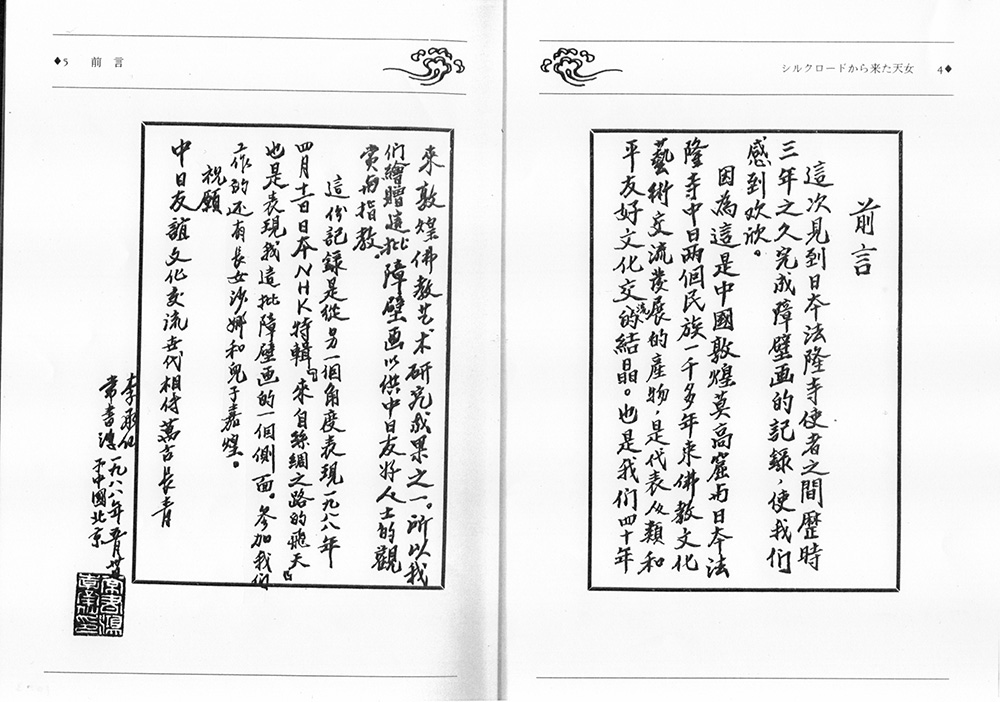 シルクロードから来た天女 4◆
前言
這次見到日本法隆寺使者之間歷時
三年之久完成障壁画的記録，使我们
感到欢欣。
因為這是中國敦煌莫高窟与日本法
隆寺中日兩個民族一千多年來佛教文化
藝術交流发展的産物，是代表人類和
平友好文化交流的結晶。也是我们四十年
◆5 前言
來敦煌佛教艺术研究成果之一。所以我
们繪贈這批障壁画以供中日友好人士的觀
賞与指教。
這份記録是從另一個角度表現一九八八年
四月十日日本NHK特輯『來自絲綢之路的飛天』
也是表現我這批障壁画的一個側面。参加我们
工作的还有長女沙娜和兒子嘉煌。
祝願
中日友誼文化交流世代相传萬古長青
李承仙
常書鴻
一九八八年五月
于中國北京